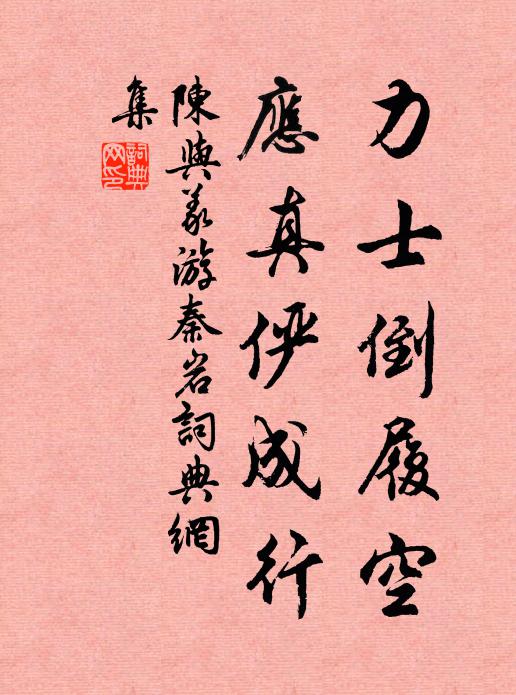 力士倒履空
應真俨成行
陳與義游秦岩詞典網
集
詞典网印